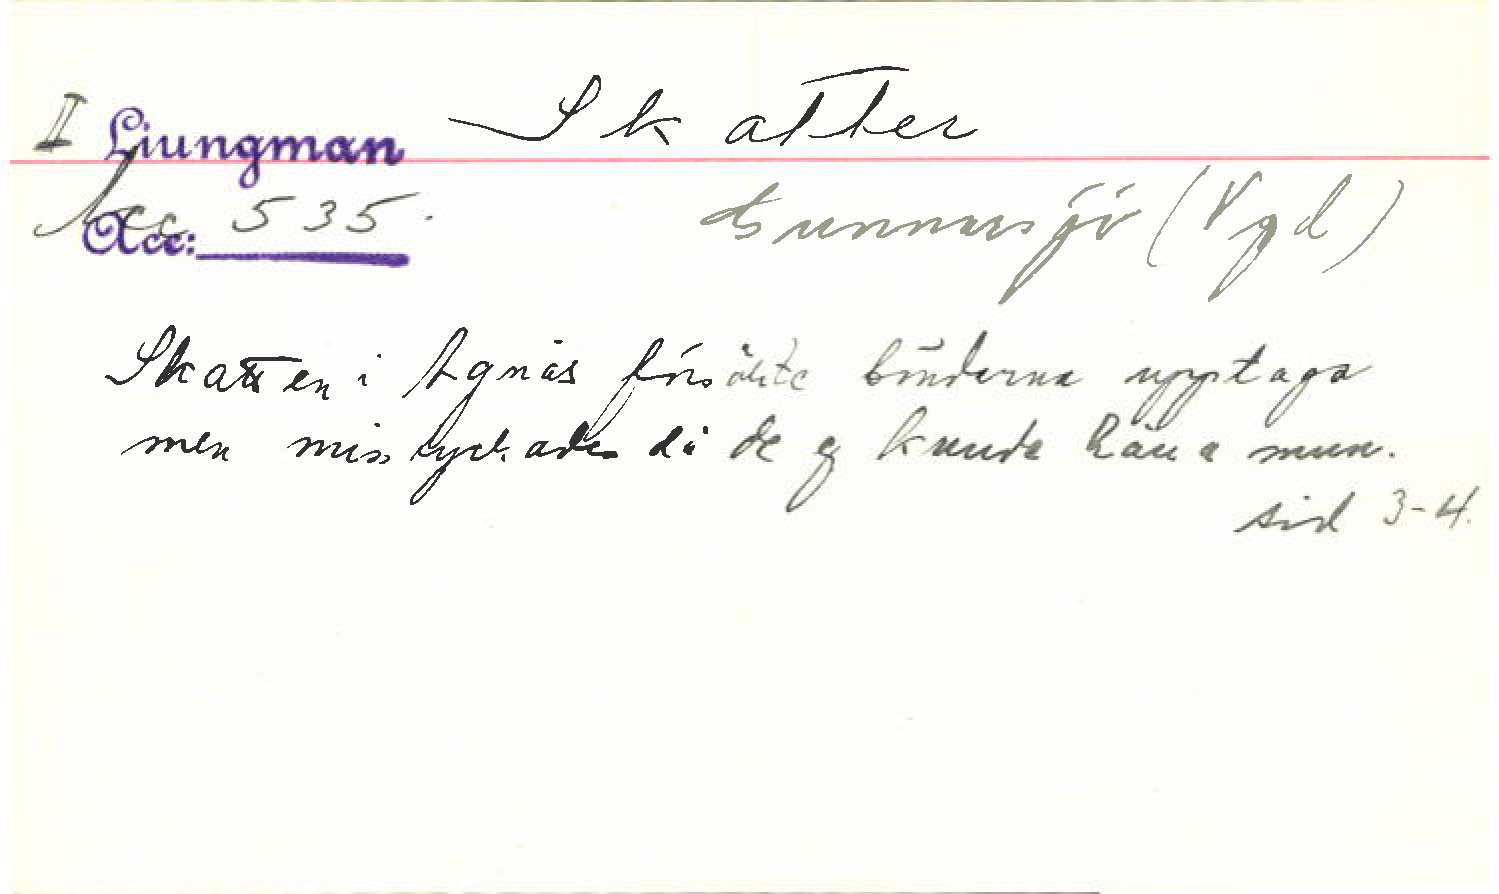 I Liungman Skatter
Acc. 535.
Acc:
Gunnarsjö (Vgd)
Skatten i Agnäs försökte bönderna upptaga
men misslyckades då de ej kunde hålla mun.
sid 3-4.